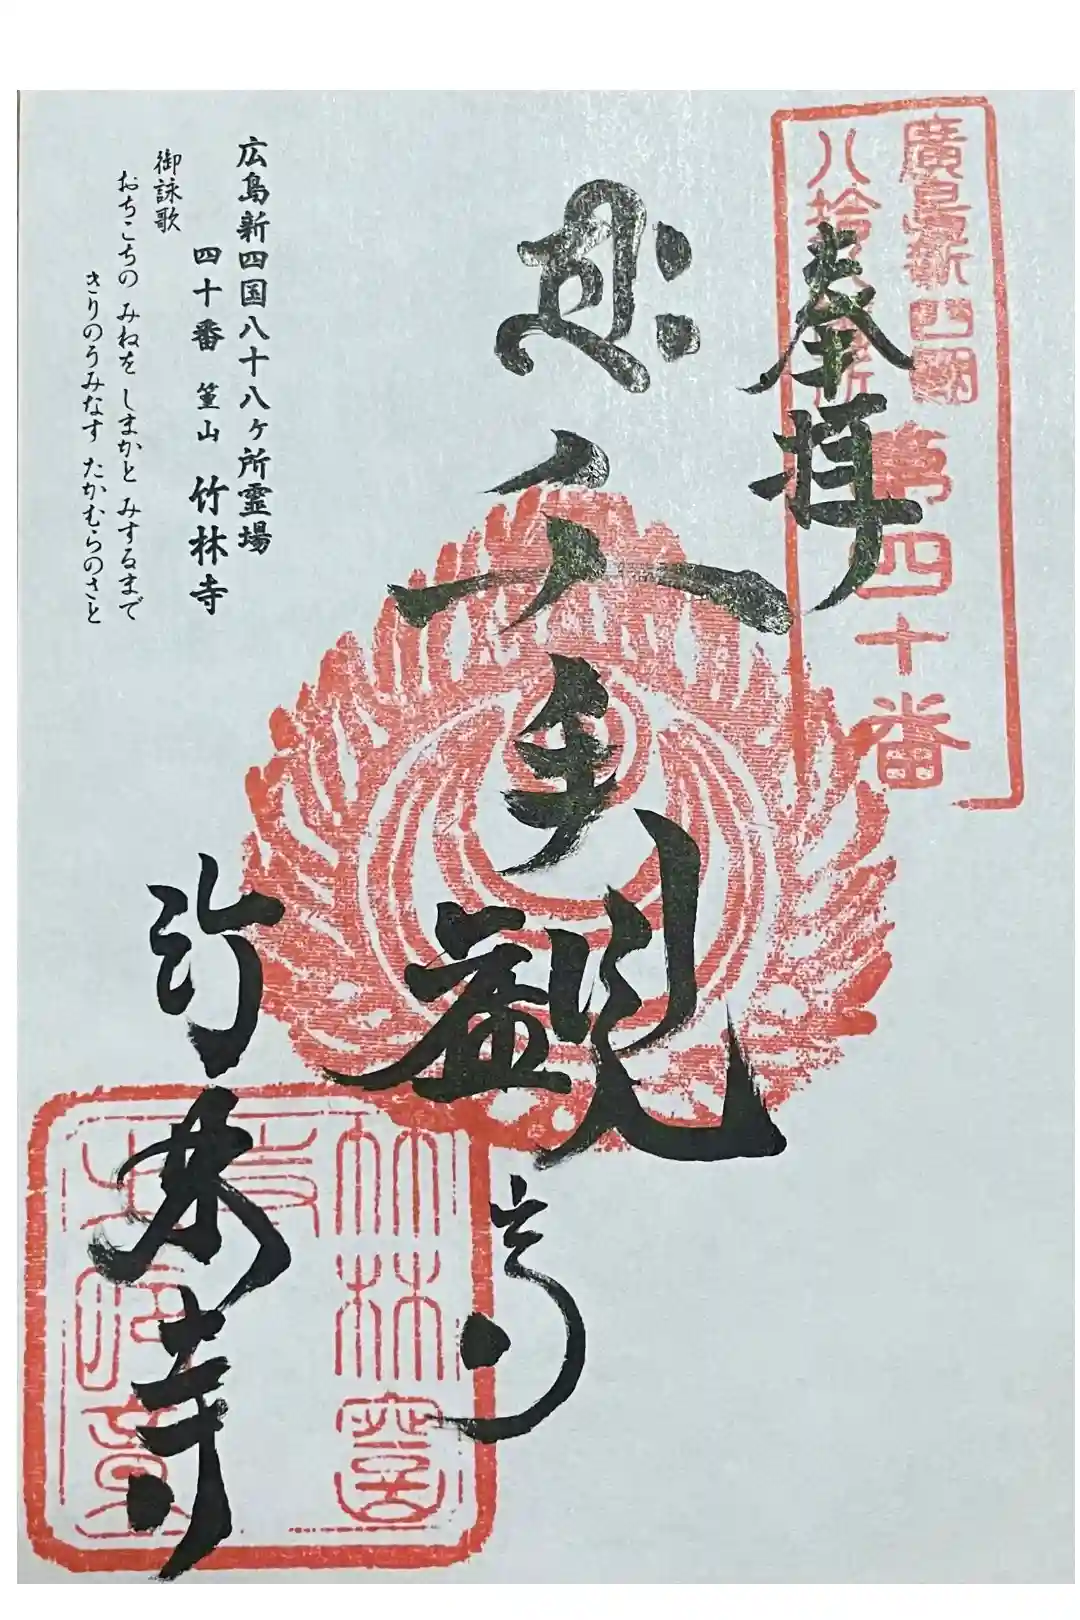 廣島新四國
八拾八箇所
第四十番
奉拝
千手観音
竹林寺
広島新四国八十八ケ所霊場
四十番 篁山 竹林寺
御詠歌
おちこちの みねを しまかと みするまで
きりのうみなす たかむらのさと